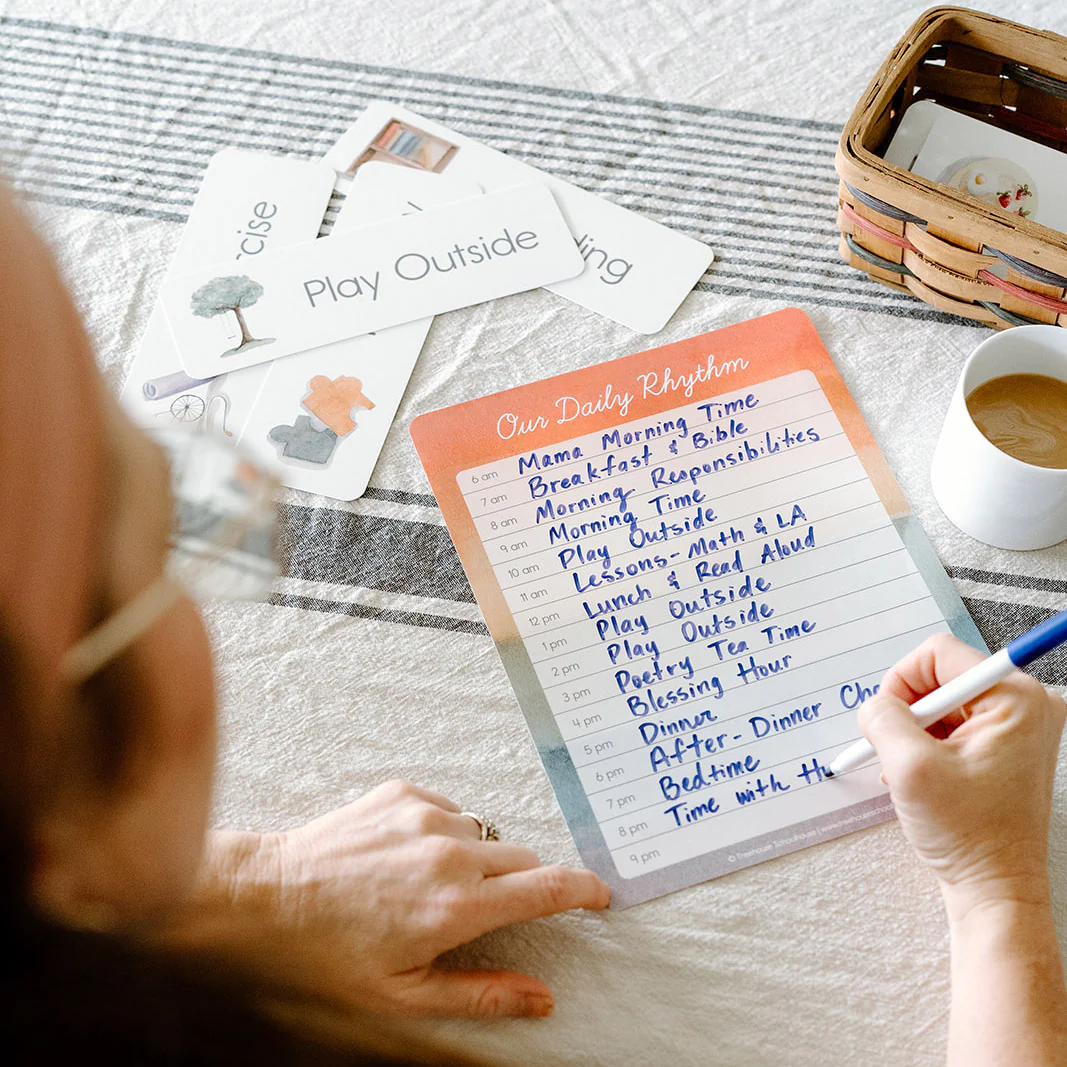 cise
ing
Play Outside
Our Daily Rhythm
6 am Mama Morning Time
7 am Breakfast & Bible
8 am Morning Responsibilities
9 am Morning Time
10 am Play Outside
11 am Lessons - Math & LA
12 pm Lunch & Read Aloud
1 pm Play Outside
2 pm Play Outside
3 pm Poetry Tea Time
4 pm Blessing Hour
5 pm Dinner
6 pm After-Dinner Cho
7 pm Bedtime
8 pm Time with Hu
9 pm
© Treehouse Schoolhouse |